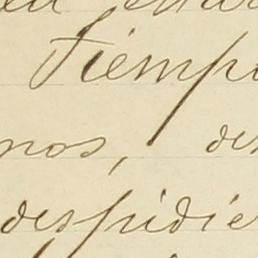 Tiemp
nos, des
despidie